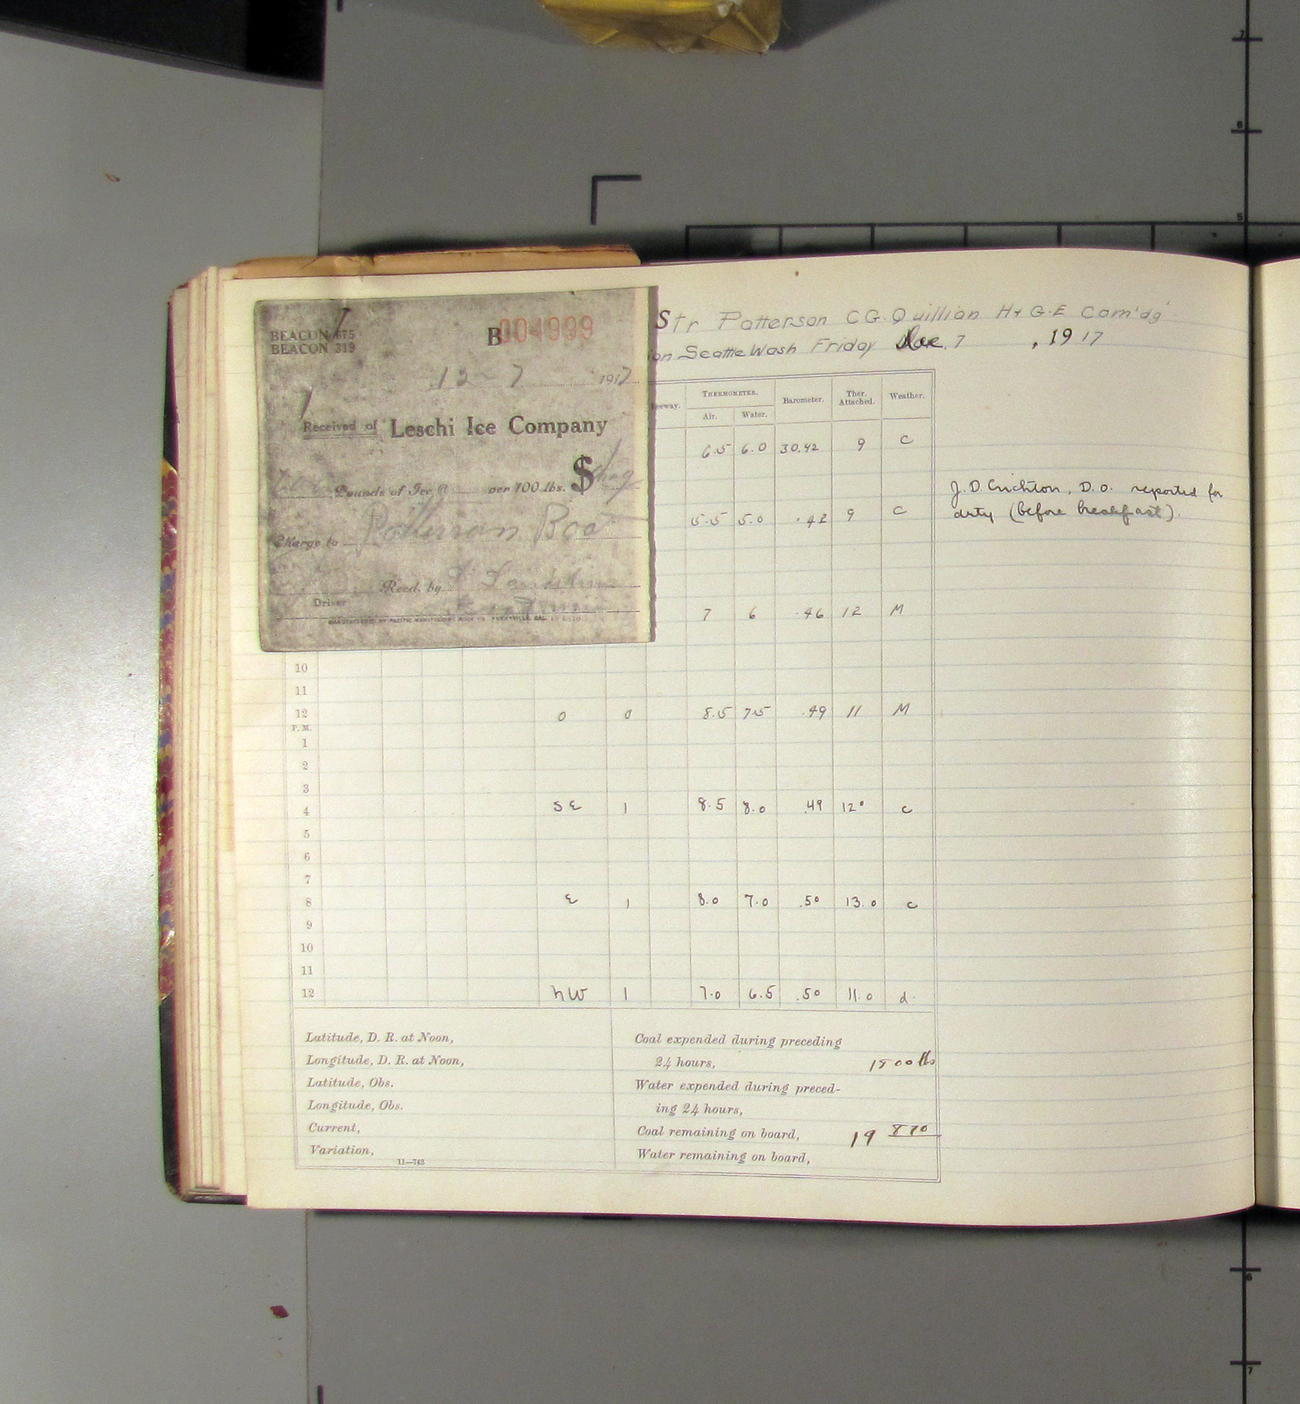 BEACON 675
BEACON 319
B 004999
12-7 1917
Received of Leschi Ice Company
Pounds of Ice @ per 100 lbs. $ Chag
Charge to Patterson Boat
Recd. by
Driver
Str Patterson C.G. Quillian H & G.E Com'dg
on Seattle Wash Friday Dec. 7, 1917
THERMOMETER. Barometer. Ther. Attached. Weather.
Air. Water.
6.5 6.0 30.42 9 C
5.5 5.0 .42 9 C
J. D. Crichton, D.O. reported for
duty (before breakfast).
7 6 .46 12 M
10
11
12 0 0 8.5 7.5 .49 11 M
P.M.
1
2
3
4 SE 1 8.5 8.0 .49 12° c
5
6
7
8 E 1 8.0 7.0 .50 13.0 c
9
10
11
12 NW 1 7.0 6.5 .50 11.0 d.
Latitude, D. R. at Noon,
Longitude, D. R. at Noon,
Latitude, Obs.
Longitude, Obs.
Current,
Variation,
11—763
Coal expended during preceding
24 hours, 1800 lbs
Water expended during preced-
ing 24 hours,
Coal remaining on board, 19
Water remaining on board,
7
6
5
6
7